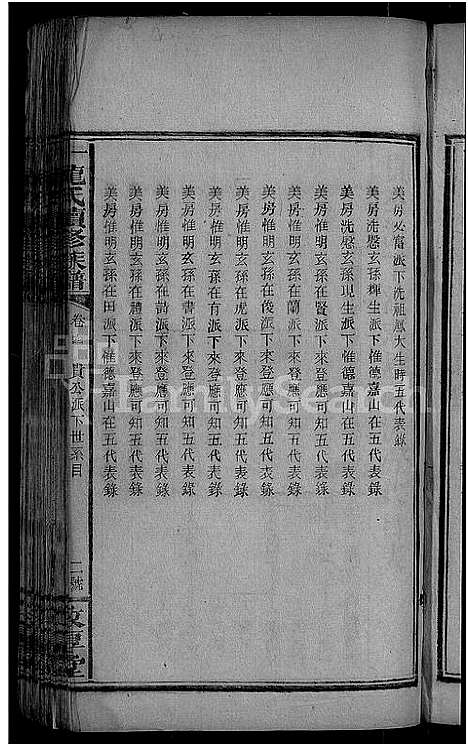 美房必甯派下洗祖愿大生時五代表錄
美房洗愍玄孫輝生派下惟德嘉山在五代表錄
美房洗愍玄孫現生派下惟德嘉山在五代表錄
美房惟明玄孫在賢派下來登應可知五代表錄
美房惟明玄孫在蘭派下來登應可知五代表錄
美房惟明玄孫在俊派下來登應可知五代表錄
美房惟明玄孫在虎派下來登應可知五代表錄
美房惟明玄孫在有派下來登應可知五代表錄
美房惟明玄孫在書派下來登應可知五代表錄
美房惟明玄孫在詩派下來登應可知五代表錄
美房惟明玄孫在禮派下來登應可知五代表錄
美房惟明玄孫在田派下惟德嘉山在五代表錄
氏續修族譜
卷 貴公派下世系目
二號
敦重堂
FamilySearch